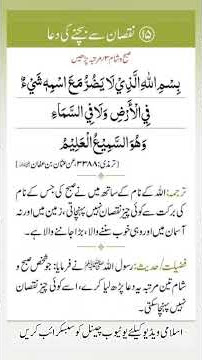 ۱۵ نقصان سے بچنے کی دعا
صبح و شام ۳ مرتبہ پڑھیں
بِسْمِ اللّٰهِ الَّذِيْ لَا يَضُرُّ مَعَ اسْمِهٖ شَيْءٌ
فِي الْأَرْضِ وَلَا فِي السَّمَاءِ
وَهُوَ السَّمِيْعُ الْعَلِيْمُ
(ترمذی: ۳۳۸۸، عن عثمان بن عفان)
ترجمہ: اللہ کے نام کے ساتھ میں نے صبح کی جس کے نام
کی برکت سے کوئی چیز نقصان نہیں پہنچاتی، زمین میں اور نہ
آسمان میں اور وہی خوب سننے والا، بڑا جاننے والا ہے۔
فضیلت / حدیث: رسول اللہ ﷺ نے فرمایا: جو شخص صبح و
شام تین مرتبہ یہ دعا پڑھ لیا کرے، اسے کوئی چیز نقصان
نہیں پہنچا سکتی۔
اسلامی ویڈیو کیلئے یوٹیوب چینل کو سبسکرائب کریں